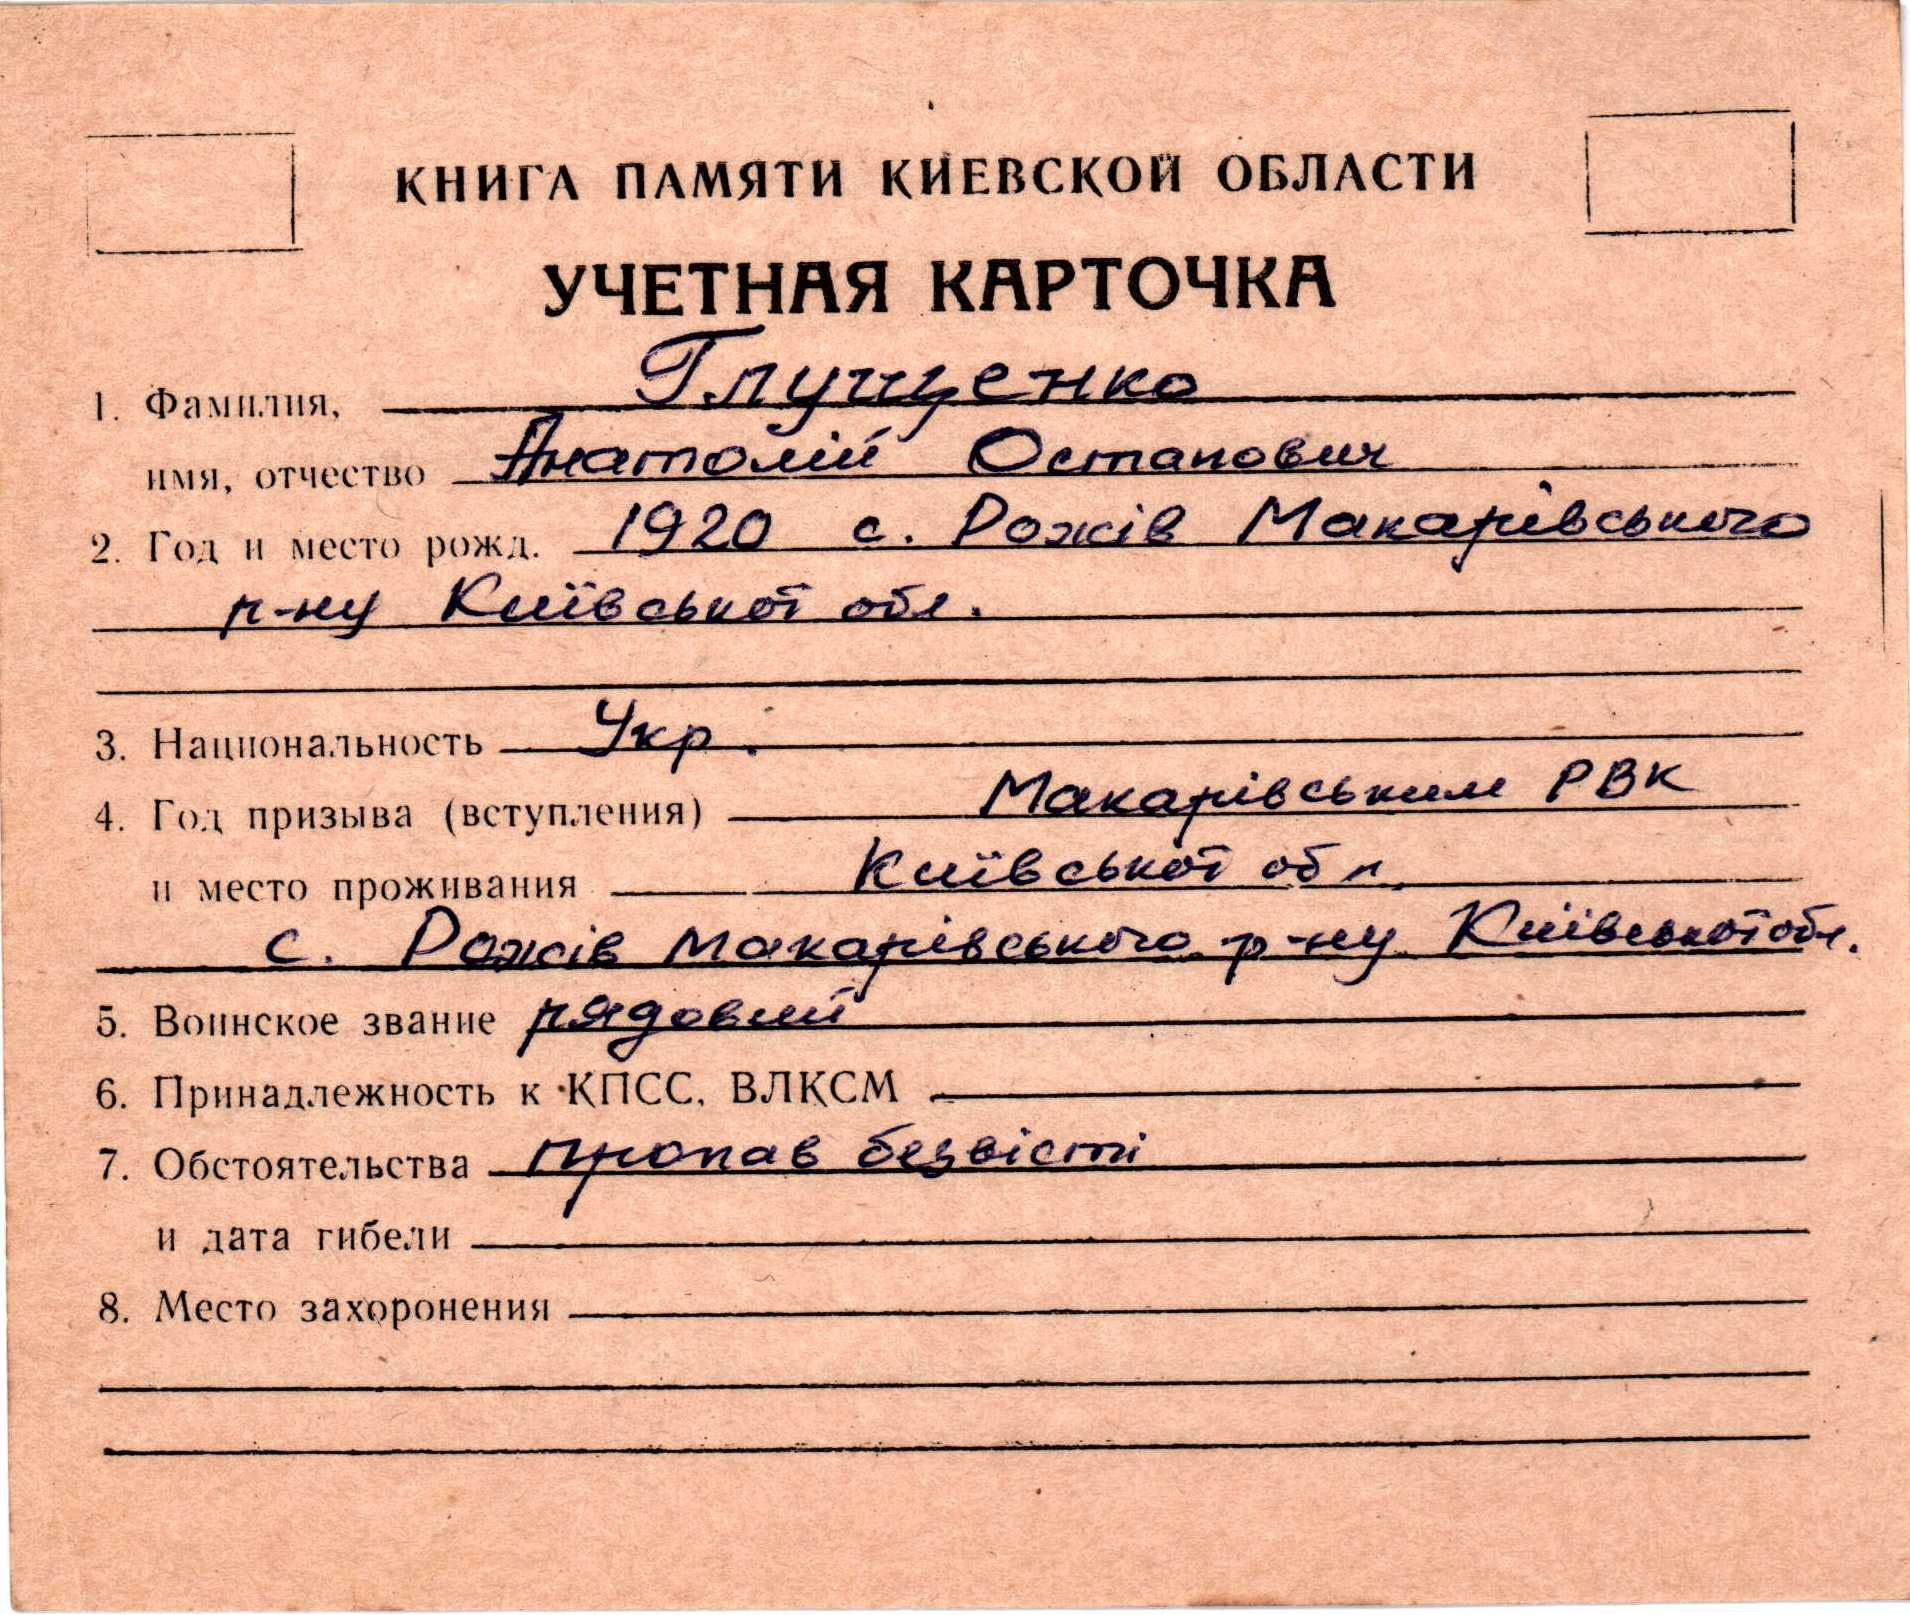 КНИГА ПАМЯТИ КИЕВСКОЙ ОБЛАСТИ
УЧЕТНАЯ КАРТОЧКА
1. Фамилия, Глущенко
имя, отчество Анатолій Остапович
2. Год и место рожд. 1920 с. Рожів Макарівського
р-ну Київської обл.
3. Национальность Укр.
4. Год призыва (вступления) Макарівським РВК
и место проживания Київської обл.
с. Рожів Макарівського р-ну Київської обл.
5. Воинское звание рядовий
6. Принадлежность к КПСС, ВЛКСМ
7. Обстоятельства пропав безвісті
и дата гибели
8. Место захоронения